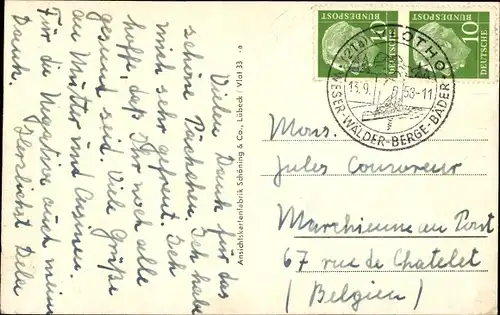 Vielen Dank für das
schöne Päckchen. Ich habe
mich sehr gefreut. Ich
hoffe, daß Ihr noch alle
gesund seid. Viele Grüße
an Mutter und
Für die Negative auch meinen
Dank. Herzlichst
Ansichtskartenfabrik Schöning & Co., Lübeck / Vlot 33 -a
10
DEUTSCHE
BUNDESPOST
10
DEUTSCHE
BUNDESPOST
VLOTHO
WESER-WÄLDER-BERGE-BÄDER
13.9. 58-11
Mons.
Jules Couvreur
Marchienne au Pont
67 rue de Chatelet
(Belgien)